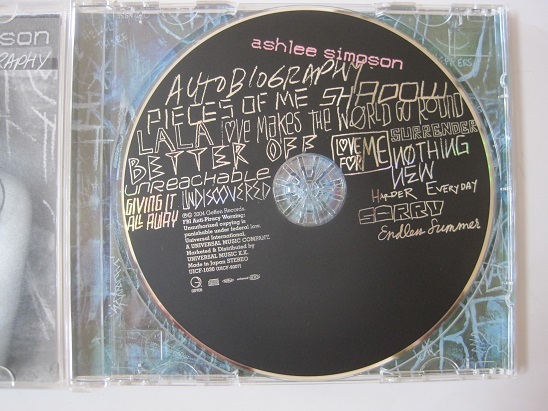 pson
GRAPHY
ashlee simpson
AUTOBIOGRAPHY
PIECES OF ME SHADOW
LALA LOVE MAKES THE WORLD GO ROUND
BETTER OFF LOVE FOR ME SURRENDER
NOTHING NEW
unreachable
UNDISCOVERED
HARDER EVERYDAY
GIVING IT ALL AWAY
SORRY
Endless Summer
℗© 2004 Geffen Records.
FBI Anti-Piracy Warning:
Unauthorized copying is
punishable under federal law.
Universal International,
A UNIVERSAL MUSIC COMPANY.
Marketed & Distributed by
UNIVERSAL MUSIC K.K.
Made in Japan STEREO
G
GEFFEN